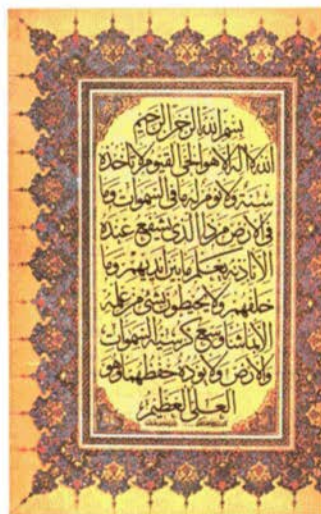 بسم الله الرحمن الرحيم
الله لا اله الا هو الحي القيوم لا تاخذه
سنة ولا نوم له ما في السموات وما
في الارض من ذا الذي يشفع عنده
الا باذنه يعلم ما بين ايديهم وما
خلفهم ولا يحيطون بشئ من علمه
الا بما شاء وسع كرسيه السموات
والارض ولا يؤده حفظهما وهو
العلي العظيم